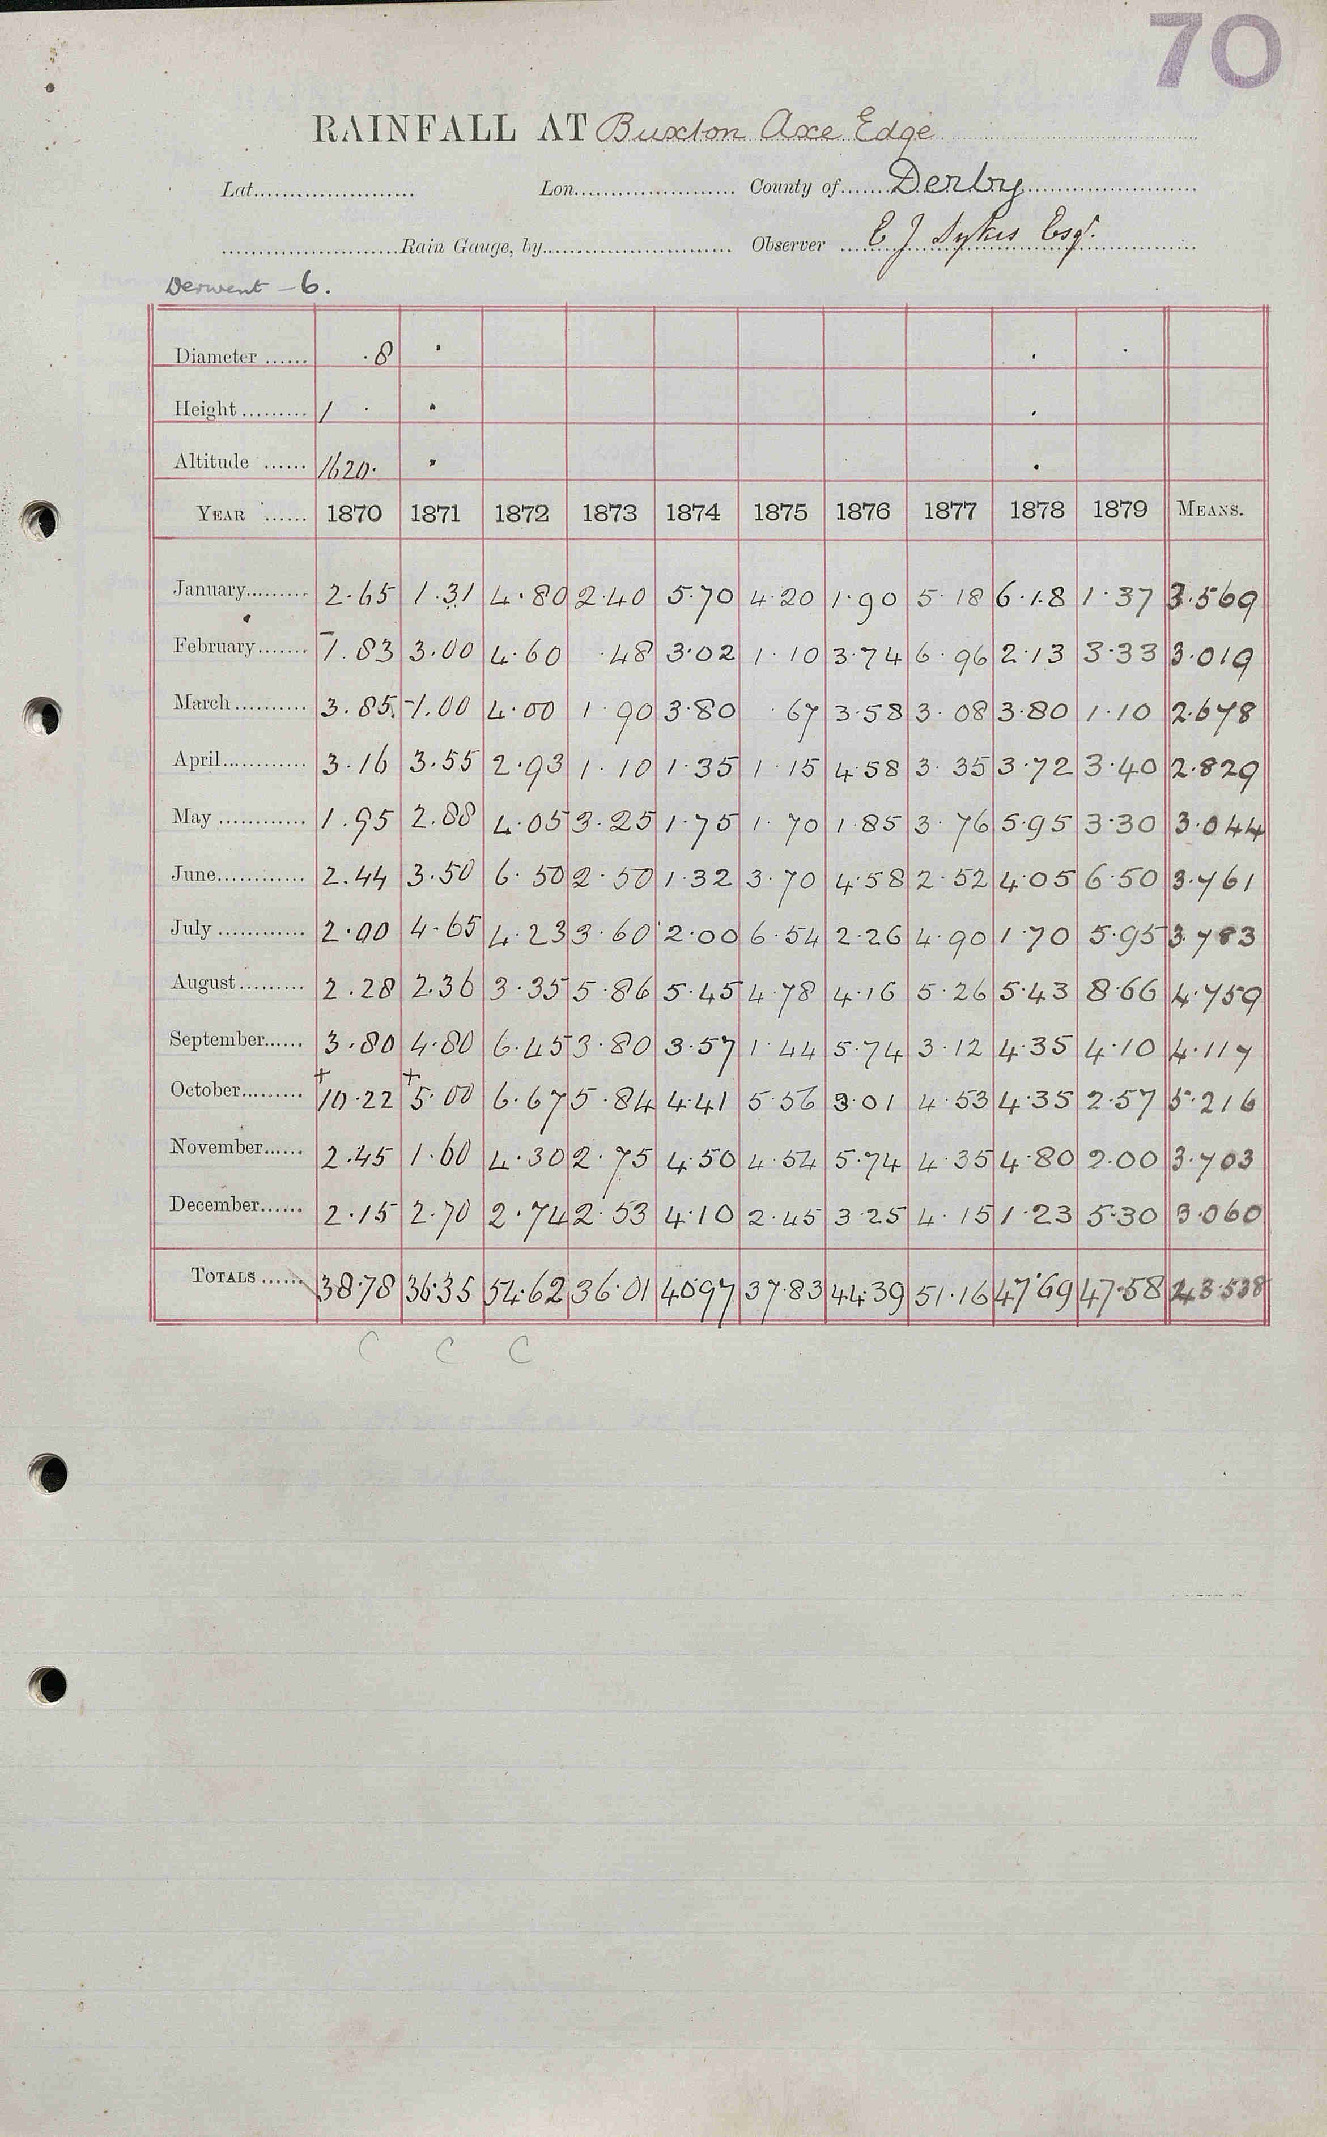 70
RAINFALL AT Buxton Axe Edge
Lat. Lon. County of Derby
Rain Gauge, by Observer E J Sykes Esqr.
Derwent - 6.
Diameter ...... .8
Height ......... 1
Altitude ...... 1620.
YEAR ...... 1870 1871 1872 1873 1874 1875 1876 1877 1878 1879 MEANS.
January......... 2.65 1.31 4.80 2.40 5.70 4.20 1.90 5.18 6.18 1.37 3.569
February....... 1.83 3.00 4.60 .48 3.02 1.10 3.74 6.96 2.13 3.33 3.019
March........... 3.85 1.00 4.00 1.90 3.80 .67 3.58 3.08 3.80 1.10 2.678
April............ 3.16 3.55 2.93 1.10 1.35 1.15 4.58 3.35 3.72 3.40 2.829
May ............ 1.95 2.88 4.05 3.25 1.75 1.70 1.85 3.76 5.95 3.30 3.044
June............ 2.44 3.50 6.50 2.50 1.32 3.70 4.58 2.52 4.05 6.50 3.761
July ............ 2.00 4.65 4.23 3.60 2.00 6.54 2.26 4.90 1.70 5.95 3.783
August......... 2.28 2.36 3.35 5.86 5.45 4.78 4.16 5.26 5.43 8.66 4.759
September...... 3.80 4.80 6.45 3.80 3.57 1.44 5.74 3.12 4.35 4.10 4.117
+ +
October......... 10.22 5.00 6.67 5.84 4.41 5.56 3.01 4.53 4.35 2.57 5.216
November...... 2.45 1.60 4.30 2.75 4.50 4.54 5.74 4.35 4.80 2.00 3.703
December...... 2.15 2.70 2.74 2.53 4.10 2.45 3.25 4.15 1.23 5.30 3.060
TOTALS ...... 38.78 36.35 54.62 36.01 40.97 37.83 44.39 51.16 47.69 47.58 43.538
C C C